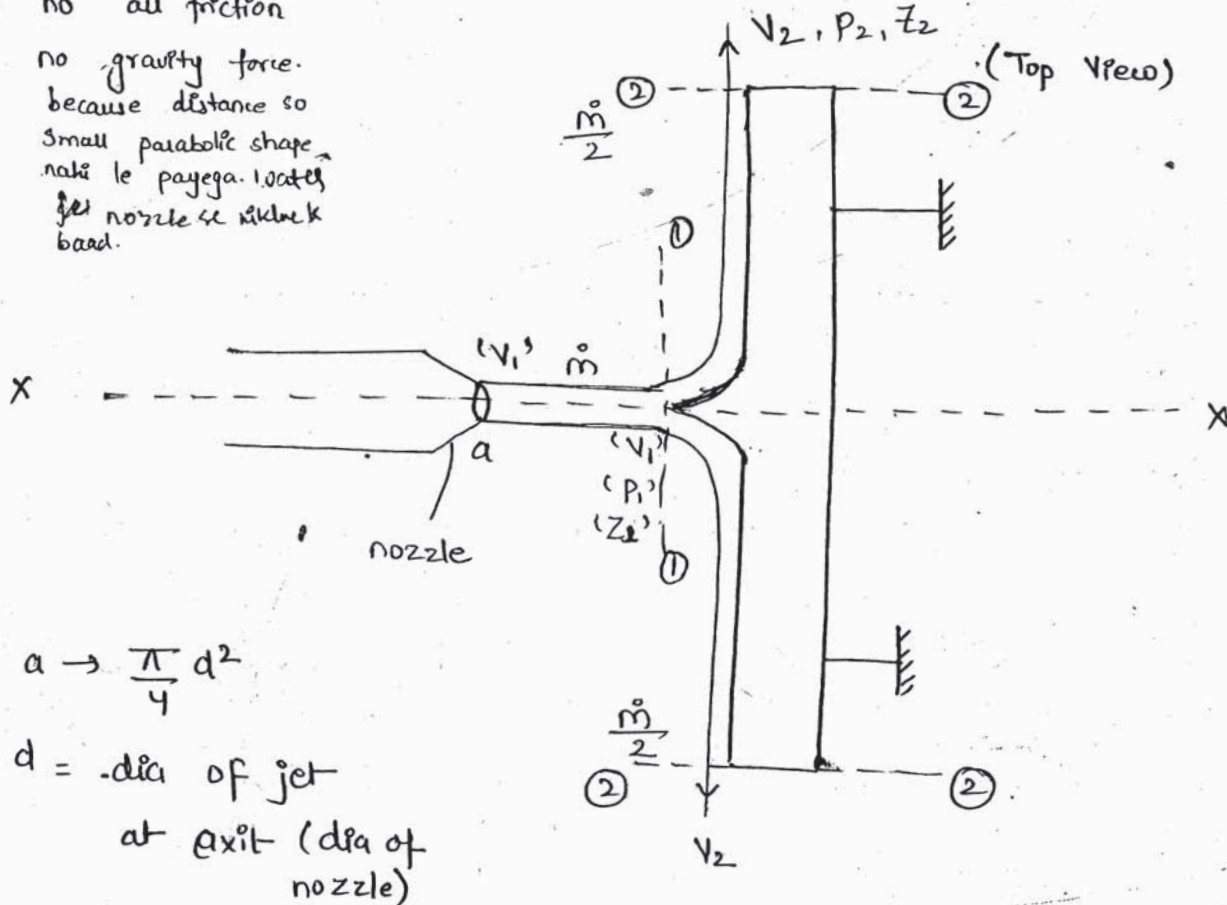 no air friction
no gravity force.
because distance so
small parabolic shape
nahi le payega. water
jet nozzle se niklne k
baad.
V2, P2, Z2
(Top View)
② ②
ṁ/2
①
X (V1) ṁ X
a (V1)
(P1)
(Z1)
nozzle ①
a → π/4 d²
ṁ/2
d = dia of jet
② ②
at exit (dia of
V2
nozzle)